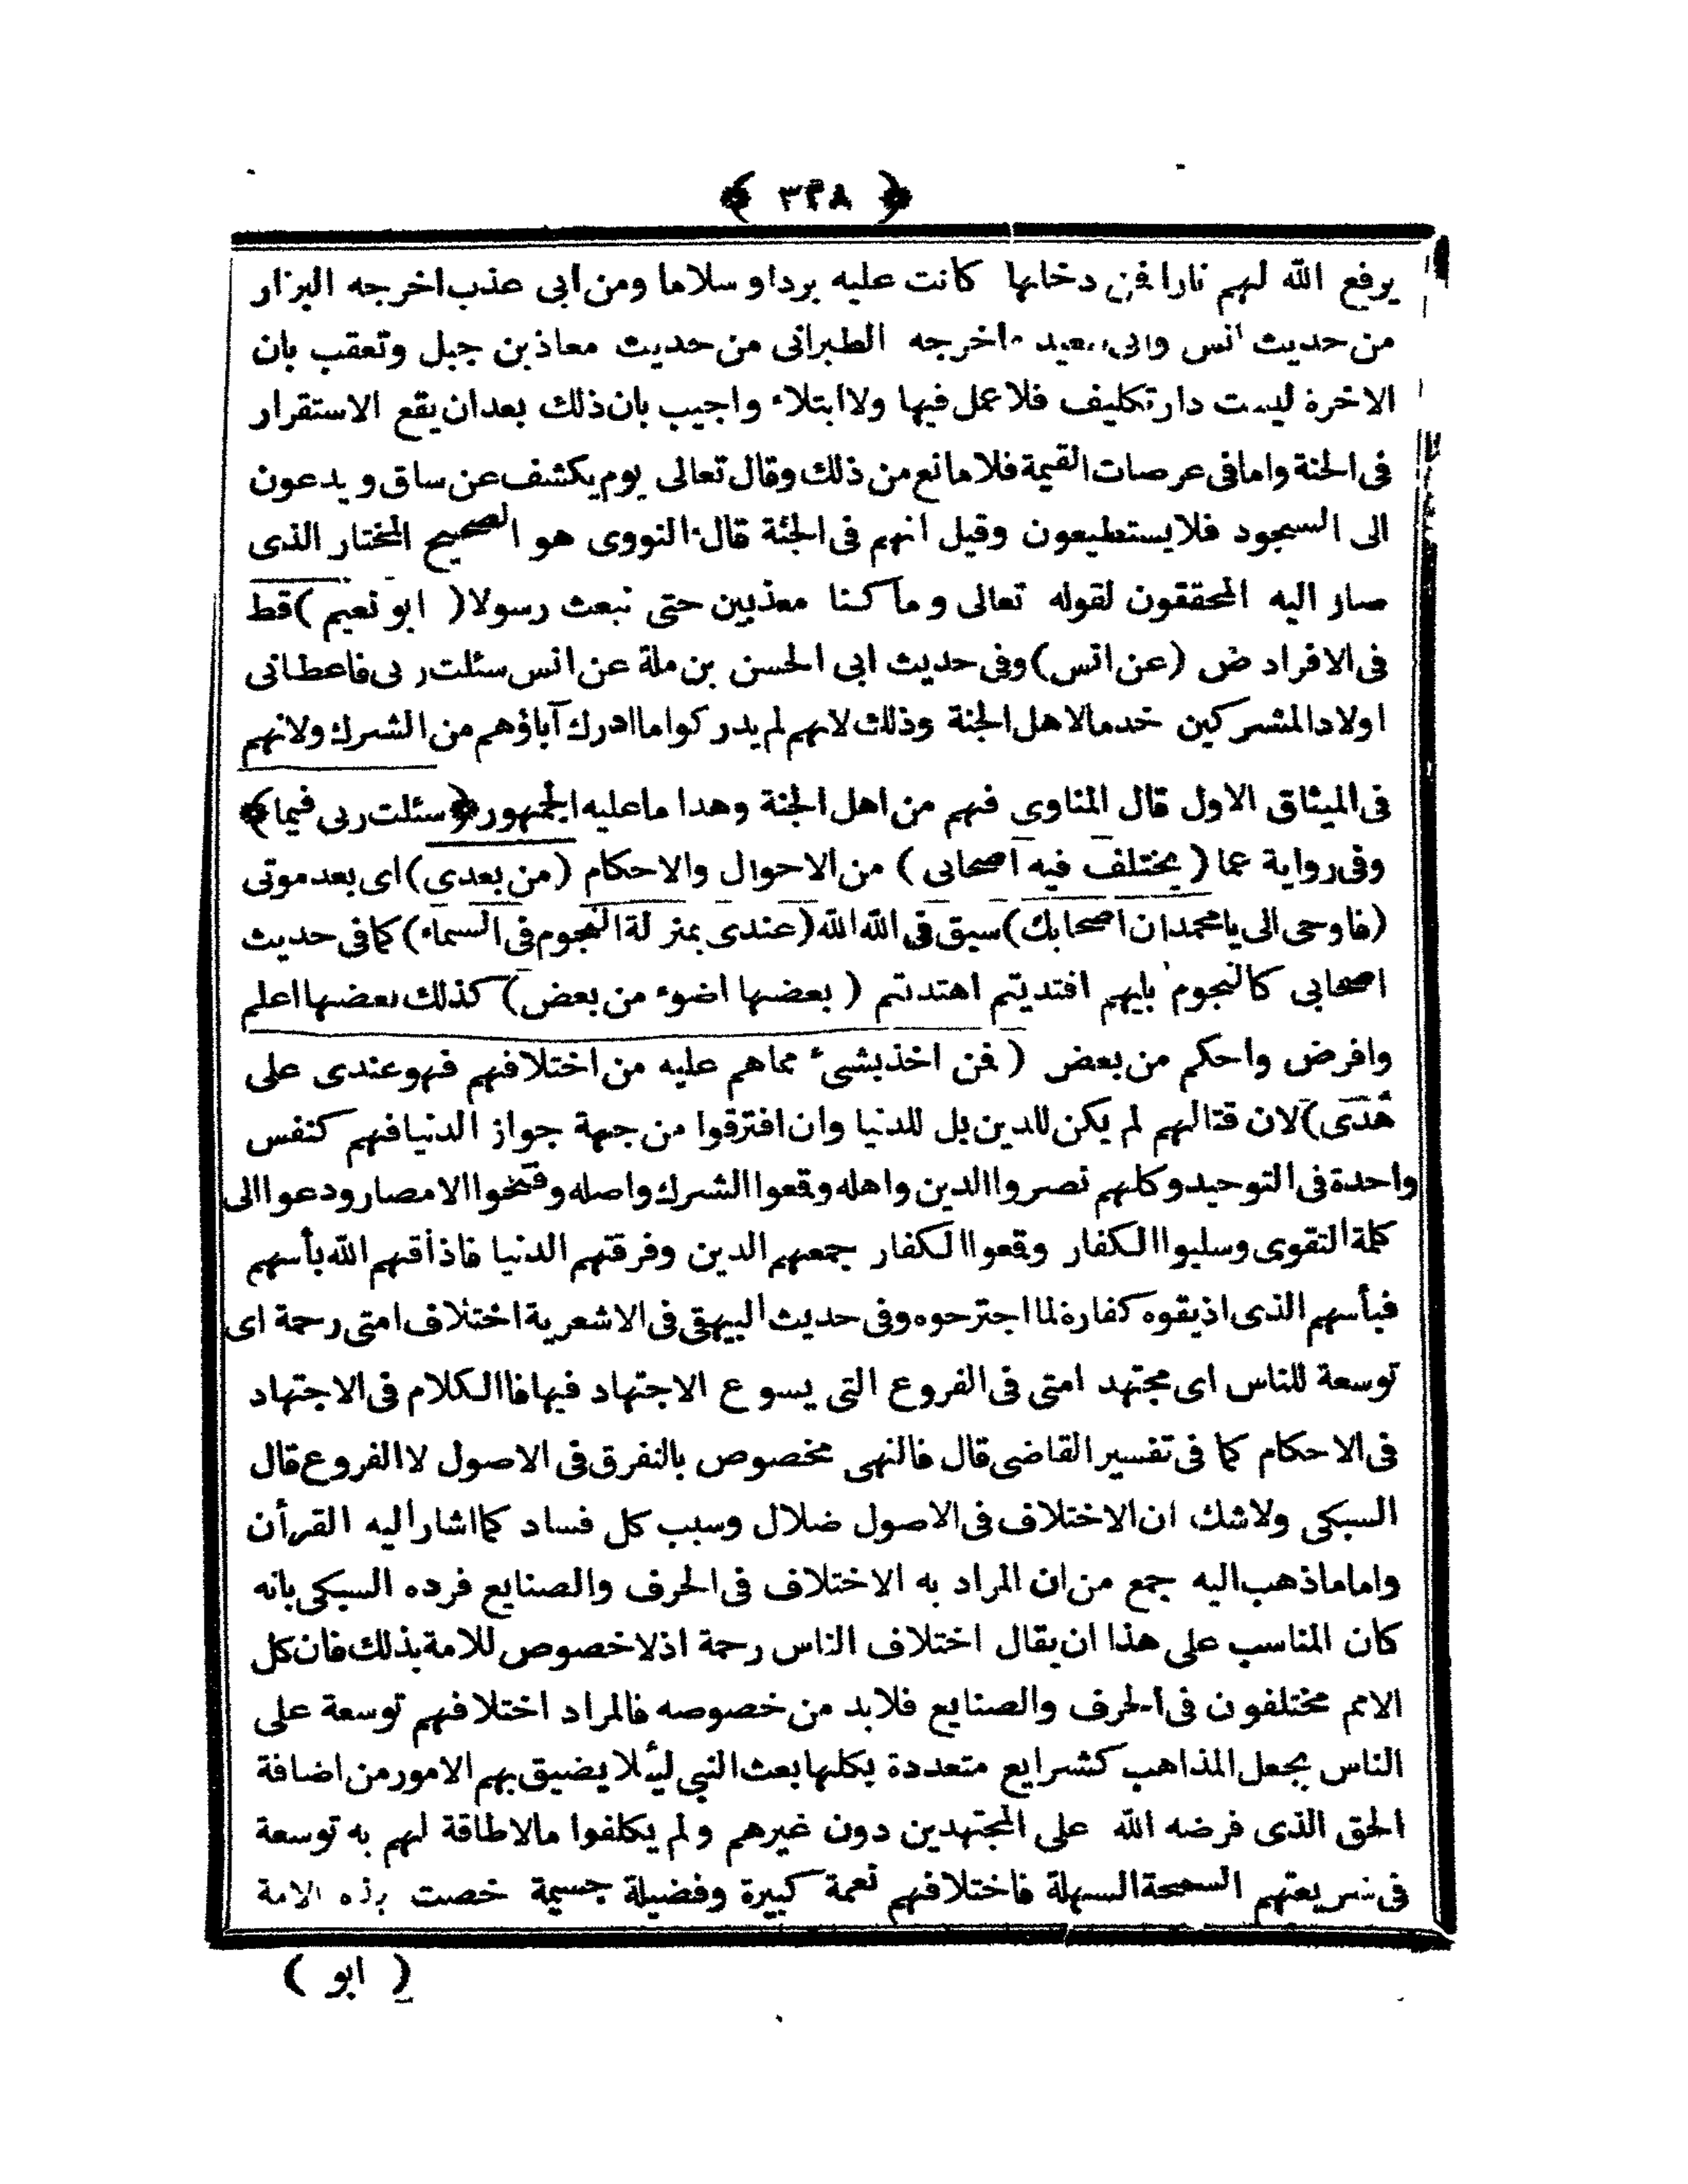 ﴿ ٣٣٨ ﴾
يرفع الله لهم نارا فمن دخلها كانت عليه برداو سلاما ومن ابى عذب اخرجه البزار
من حديث انس وابى سعيد واخرجه الطبرانى من حديث معاذ بن جبل وتعقب بان
الاخرة ليست دار تكليف فلا عمل فيها ولا ابتلاء واجيب بان ذلك بعد ان يقع الاستقرار
فى الجنة واما فى عرصات القيمة فلا مانع من ذلك وقال تعالى يوم يكشف عن ساق ويدعون
الى السجود فلا يستطيعون وقيل انهم فى الجنة قال النووى هو الصحيح المختار الذى
صار اليه المحققون لقوله تعالى وما كنا معذبين حتى نبعث رسولا ( ابو نعيم ) قط
فى الافراد ض (عن انس) وفى حديث ابى الحسن بن ملة عن انس سئلت ربى فاعطانى
اولاد المشركين خدما لاهل الجنة وذلك لانهم لم يدركوا ما ادرك آباؤهم من الشرك ولانهم
فى الميثاق الاول قال المناوى فهم من اهل الجنة وهذا ما عليه الجمهور ﴿ سئلت ربى فيما ﴾
وفى رواية عما ( يختلف فيه اصحابى ) من الاحوال والاحكام (من بعدى) اى بعد موتى
(فاوحى الى يا محمد ان اصحابك) سبق فى الله الله (عندى بمنزلة النجوم فى السماء) كما فى حديث
اصحابى كالنجوم بايهم اقتديتم اهتديتم ( بعضها اضوء من بعض) كذلك بعضها اعلم
وافرض واحكم من بعض ( فمن اخذ بشىء مما هم عليه من اختلافهم فهو عندى على
هُدى) لان قتالهم لم يكن للدين بل للدنيا وان افترقوا من جهة جواز الدنيا فهم كنفس
واحدة فى التوحيد وكلهم نصروا الدين واهله وقعوا الشرك واصله وفتحوا الامصار ودعوا الى
كلمة التقوى وسلبوا الكفار وقعوا الكفار جمعهم الدين وفرقتهم الدنيا فاذاقهم الله بأسهم
فبأسهم الذى اذيقوه كفارة لما اجترحوه وفى حديث البيهقى فى الاشعرية اختلاف امتى رحمة اى
توسعة للناس اى مجتهد امتى فى الفروع التى يسوع الاجتهاد فيها فالكلام فى الاجتهاد
فى الاحكام كما فى تفسير القاضى قال فالنهى مخصوص بالتفرق فى الاصول لا الفروع قال
السبكى ولا شك ان الاختلاف فى الاصول ضلال وسبب كل فساد كما اشار اليه القرأن
واما ما ذهب اليه جمع من ان المراد به الاختلاف فى الحرف والصنايع فرده السبكى بانه
كان المناسب على هذا ان يقال اختلاف الناس رحمة اذ لا خصوص للامة بذلك فان كل
الامم مختلفون فى الحرف والصنايع فلابد من خصوصه فالمراد اختلافهم توسعة على
الناس بجعل المذاهب كشرايع متعددة بكلها بعث النبى لئلا يضيق بهم الامور من اضافة
الحق الذى فرضه الله على المجتهدين دون غيرهم ولم يكلفوا مالا طاقة لهم به توسعة
فى شريعتهم السمحة السهلة فاختلافهم نعمة كبيرة وفضيلة جسيمة خصت بذه الامة
( ابو )